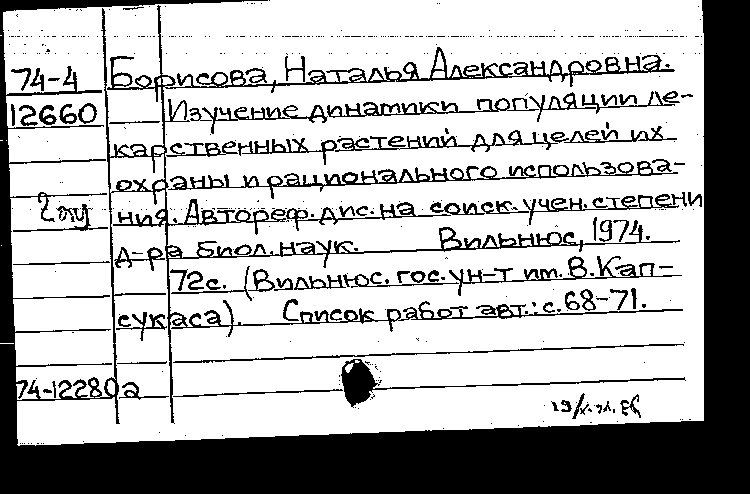 74-4 Борисова, Наталья Александровна.
12660 Изучение динамики популяции ле-
карственных растений для целей их
охраны и рационального использова-
ния. Автореф. дис. на соиск. учен. степени
д-ра биол. наук. Вильнюс, 1974.
72с. (Вильнюс. гос. ун-т им. В. Кап-
сукаса). Список работ авт.: с. 68-71.
74-12280а